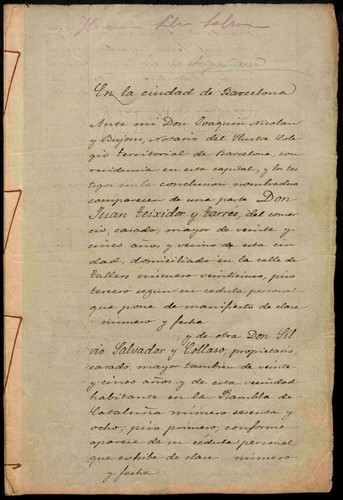 En la ciudad de Barcelona
Ante mi Don Joaquin Nicolau
y Bujons, Notario del Ilustre Cole
gio territorial de Barcelona, con
residencia en esta capital, y los tes
tigos en la conclusion nombradros
comparecen de una parte Don
Juan Teixidor y Tarrés, del comer
cio, casado, mayor de veinte y
cinco años y vecino de esta ciu
dad, domiciliado en la calle de
Tallers número veinticinco, piso
tercero segun su cédula personal
que pone de manifiesto de clase
número y fecha
y de otra Don Sil
vio Salvador y Collaso, propietario
casado, mayor tambien de veinte
y cinco años, y de esta vecindad
habitante en la Rambla de
Cataluña número sesenta y
ocho, piso primero, conforme
aparece de su cédula personal
que exhibe de clase número
y fecha